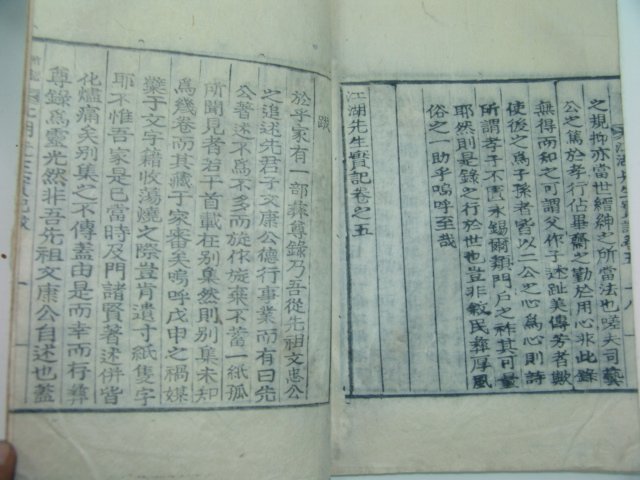 之親抑亦當世縉紳之所當法也嗟夫司藝
公之篤於孝行佔畢齋之勤於用心非此錄
無得而知之可謂父作子述趾美傳芳者歟
使後之爲子孫者皆以二公之心爲心則詩
所謂孝子不匱永錫爾類門户之祚其可量
耶然則是錄之行於世也豈非敦民彝厚風
俗之一助乎嗚呼至哉
江湖先生實記卷之五
跋
於乎家有一部彝尊錄乃吾從先祖文忠公
之追述先君子文康公德行事業而有曰先
公著述不爲不多而旋作旋棄不蓄一紙孤
所聞見者若干首載在別集然則別集未知
爲幾卷而其藏于家審矣嗚呼戊申之禍媒
孽于文字籍收蕩燒之際豈肯遺寸紙隻字
耶不惟吾家是已當時及門諸賢著述併皆
化爐痛矣別集之不傳蓋由是而幸而行彝
尊錄爲靈光然非吾先祖文康公自述也蓋